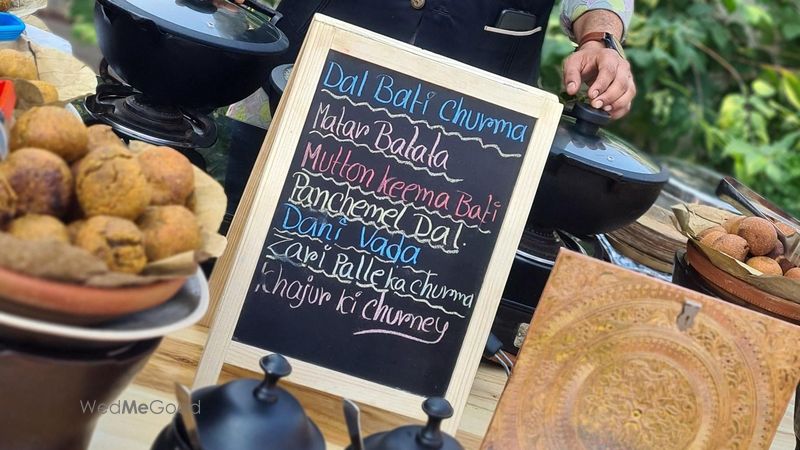 Dal Bati Churma
Matar Batala
Mutton Keema Bati
Panchemel Dal.
Dahi Vada
Zari Palle ka churma
Khajur ki churney
WedMeGood